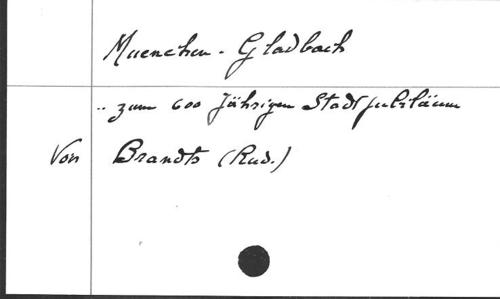 Muenchen-Gladbach
.. zum 600 Jährigen Stadtjubiläum
Von Brandts (Rud.)